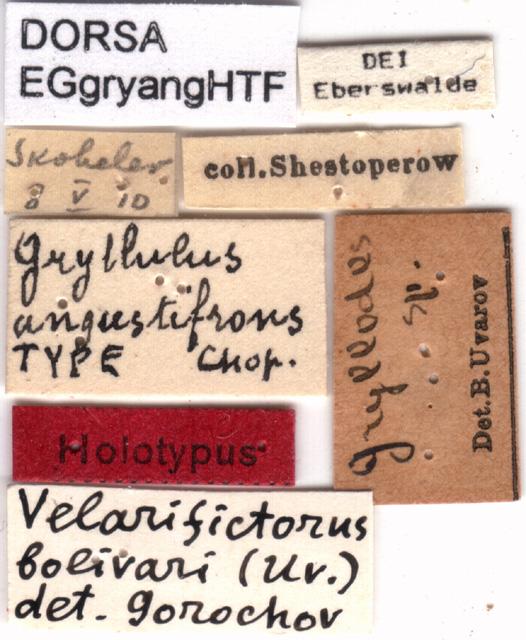 DORSA
EGgryangHTF
DEI
Eberswalde
Skobelev
8 V 10
coll.Shestoperow
Gryllulus
angustifrons
TYPE Chop.
Gryllodes
sp.
Det. B. Uvarov
Holotypus
Velarifictorus
bolivari (Uv.)
det. Gorochov